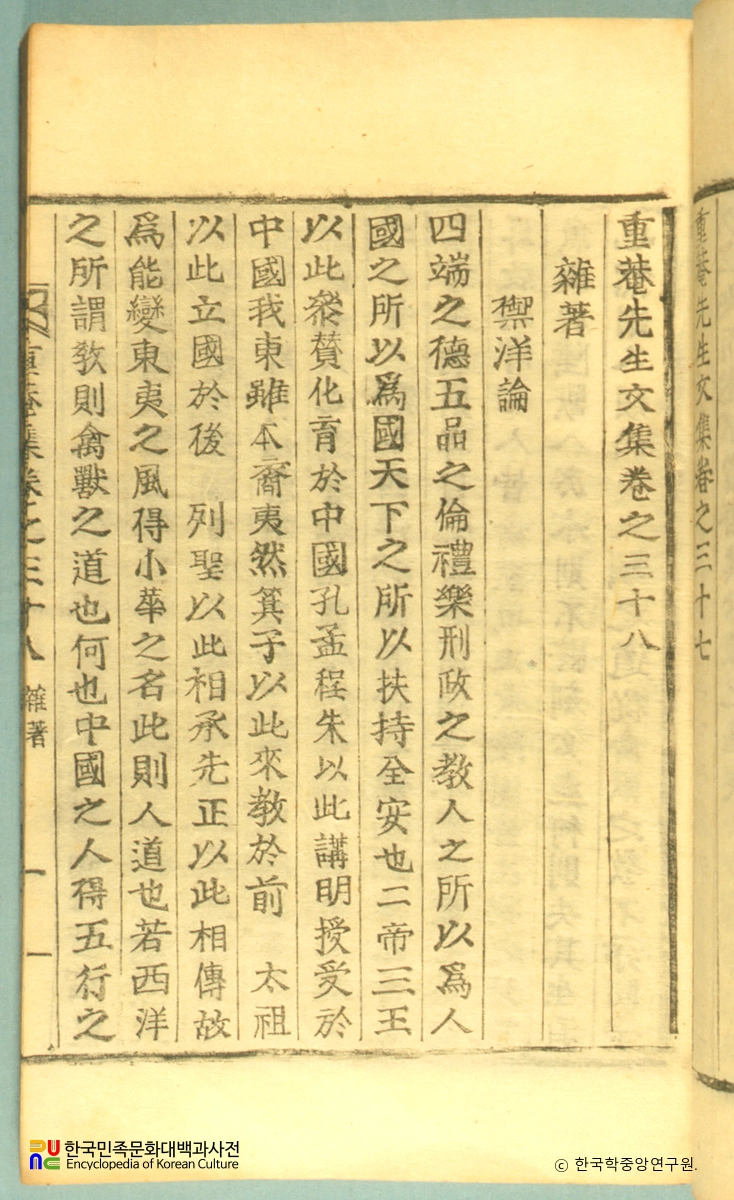 重菴先生文集卷之三十七
重菴先生文集卷之三十八
雜著
禦洋論
四端之德五品之倫禮樂刑政之敎人之所以爲人
國之所以爲國天下之所以扶持全安也二帝三王
以此叅賛化育於中國孔孟程朱以此講明授受於
中國我東雖本裔夷然箕子以此來敎於前 太祖
以此立國於後 列聖以此相承先正以此相傳故
爲能變東夷之風得小華之名此則人道也若西洋
之所謂敎則禽獸之道也何也中國之人得五行之
重菴集卷之三十八 雜著 一
한국민족문화대백과사전
Encyclopedia of Korean Culture
© 한국학중앙연구원.